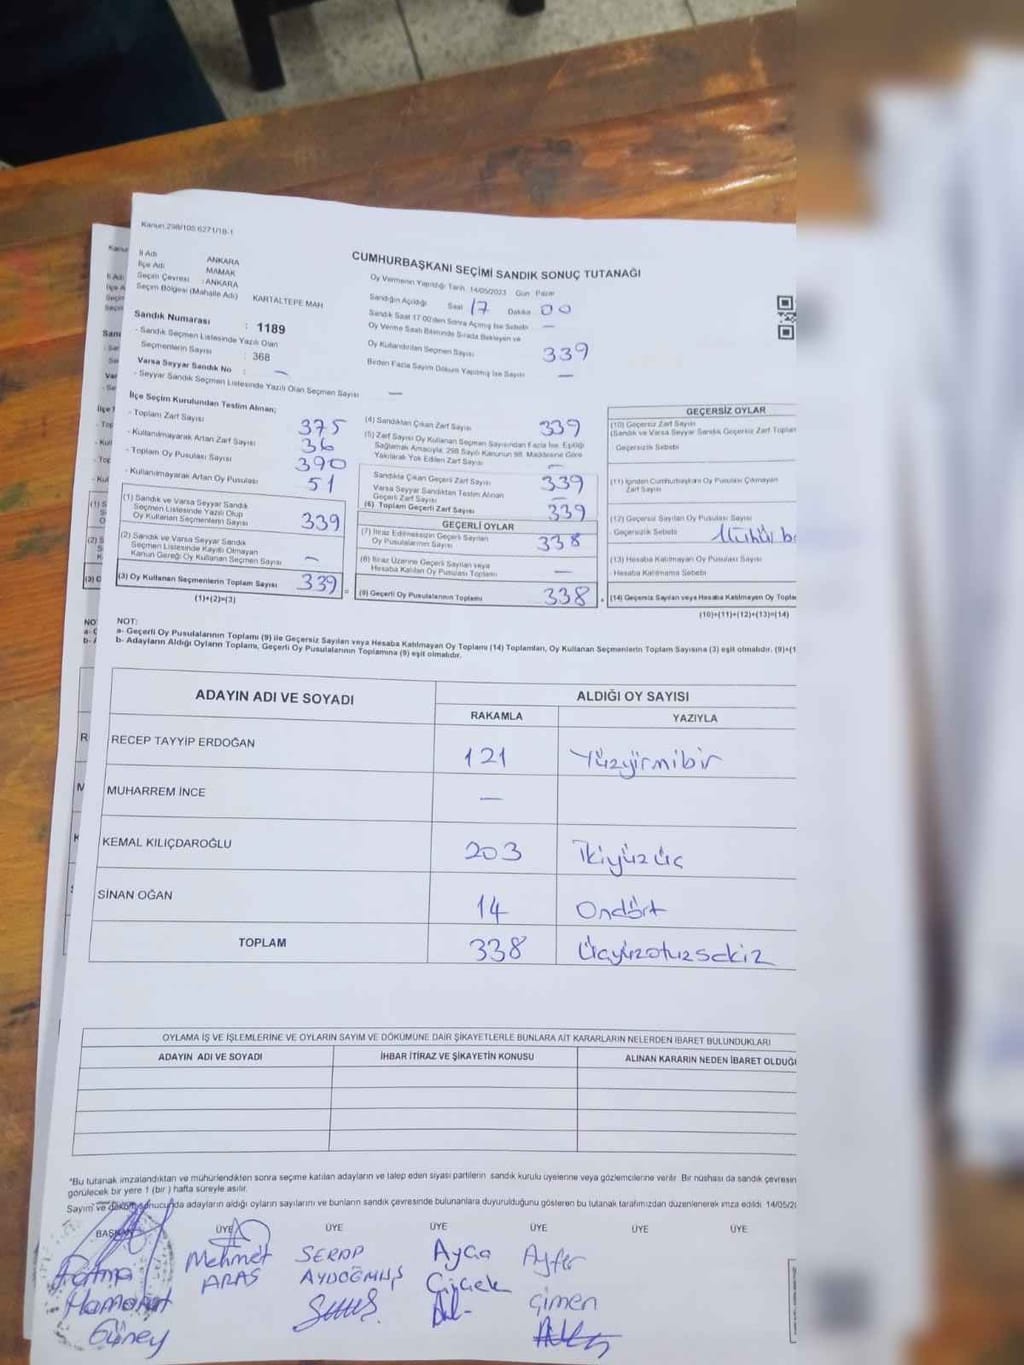 Kanun:298/105;6271/18-1
CUMHURBAŞKANI SEÇİMİ SANDIK SONUÇ TUTANAĞI
İl Adı ANKARA
İlçe Adı MAMAK
Seçim Çevresi : ANKARA
Seçim Bölgesi (Mahalle Adı) KARTALTEPE MAH
Sandık Numarası : 1189
- Sandık Seçmen Listesinde Yazılı Olan
Seçmenlerin Sayısı : 368
Varsa Seyyar Sandık No : —
- Seyyar Sandık Seçmen Listesinde Yazılı Olan Seçmen Sayısı —
Oy Vermenin Yapıldığı Tarih: 14/05/2023 Gün: Pazar
Sandığın Açıldığı Saat 17 Dakika 00
Sandık Saat 17:00'den Sonra Açılmış İse Sebebi —
Oy Verme Saati Bitiminde Sırada Bekleyen ve
Oy Kullandırılan Seçmen Sayısı 339
Birden Fazla Sayım Döküm Yapılmış İse Sayısı —
İlçe Seçim Kurulundan Teslim Alınan;
- Toplam Zarf Sayısı 375
- Kullanılmayarak Artan Zarf Sayısı 36
- Toplam Oy Pusulası Sayısı 390
- Kullanılmayarak Artan Oy Pusulası 51
(1) Sandık ve Varsa Seyyar Sandık
Seçmen Listesinde Yazılı Olup
Oy Kullanan Seçmenlerin Sayısı 339
(2) Sandık ve Varsa Seyyar Sandık
Seçmen Listesinde Kayıtlı Olmayan
Kanun Gereği Oy Kullanan Seçmen Sayısı —
(3) Oy Kullanan Seçmenlerin Toplam Sayısı 339 =
(1)+(2)=(3)
(4) Sandıktan Çıkan Zarf Sayısı 339
(5) Zarf Sayısı Oy Kullanan Seçmen Sayısından Fazla İse, Eşitliği
Sağlamak Amacıyla, 298 Sayılı Kanunun 98. Maddesine Göre
Yakılarak Yok Edilen Zarf Sayısı —
Sandıkta Çıkan Geçerli Zarf Sayısı 339
Varsa Seyyar Sandıktan Teslim Alınan
Geçerli Zarf Sayısı —
(6) Toplam Geçerli Zarf Sayısı 339
GEÇERLİ OYLAR
(7) İtiraz Edilmeksizin Geçerli Sayılan
Oy Pusulalarının Sayısı 338
(8) İtiraz Üzerine Geçerli Sayılan veya
Hesaba Katılan Oy Pusulası Toplamı —
(9) Geçerli Oy Pusulalarının Toplamı 338 +
GEÇERSİZ OYLAR
(10) Geçersiz Zarf Sayısı
(Sandık ve Varsa Seyyar Sandık Geçersiz Zarf Toplam
- Geçersizlik Sebebi
(11) İçinden Cumhurbaşkanı Oy Pusulası Çıkmayan
Zarf Sayısı
(12) Geçersiz Sayılan Oy Pusulası Sayısı
- Geçersizlik Sebebi: Mühür b
(13) Hesaba Katılmayan Oy Pusulası Sayısı
- Hesaba Katılmama Sebebi
(14) Geçersiz Sayılan veya Hesaba Katılmayan Oy Topla
(10)+(11)+(12)+(13)=(14)
NOT:
a- Geçerli Oy Pusulalarının Toplamı (9) ile Geçersiz Sayılan veya Hesaba Katılmayan Oy Toplamı (14) Toplamları, Oy Kullanan Seçmenlerin Toplam Sayısına (3) eşit olmalıdır. (9)+(1
b- Adayların Aldığı Oyların Toplamı, Geçerli Oy Pusulalarının Toplamına (9) eşit olmalıdır.
ADAYIN ADI VE SOYADI ALDIĞI OY SAYISI
RAKAMLA YAZIYLA
RECEP TAYYİP ERDOĞAN 121 Yüzyirmibir
MUHARREM İNCE —
KEMAL KILIÇDAROĞLU 203 İkiyüzüç
SİNAN OĞAN 14 Ondört
TOPLAM 338 Üçyüzotuzsekiz
OYLAMA İŞ VE İŞLEMLERİNE VE OYLARIN SAYIM VE DÖKÜMÜNE DAİR ŞİKAYETLERLE BUNLARA AİT KARARLARIN NELERDEN İBARET BULUNDUKLARI
ADAYIN ADI VE SOYADI İHBAR İTİRAZ VE ŞİKAYETİN KONUSU ALINAN KARARIN NEDEN İBARET OLDUĞU
*Bu tutanak imzalandıktan ve mühürlendikten sonra seçime katılan adayların ve talep eden siyasi partilerin sandık kurulu üyelerine veya gözlemcilerine verilir. Bir nüshası da sandık çevresin
görülecek bir yere 1 (bir) hafta süreyle asılır.
Sayım ve döküm sonucunda adayların aldığı oyların sayılarını ve bunların sandık çevresinde bulunanlara duyurulduğunu gösteren bu tutanak tarafımızdan düzenlenerek imza edildi. 14/05/20
BAŞKAN ÜYE ÜYE ÜYE ÜYE ÜYE ÜYE
Fatma Hamarat Güney
Mehmet ARAS
SERAP AYDOĞMUŞ
Ayça Çiçek
Ayfer Çimen